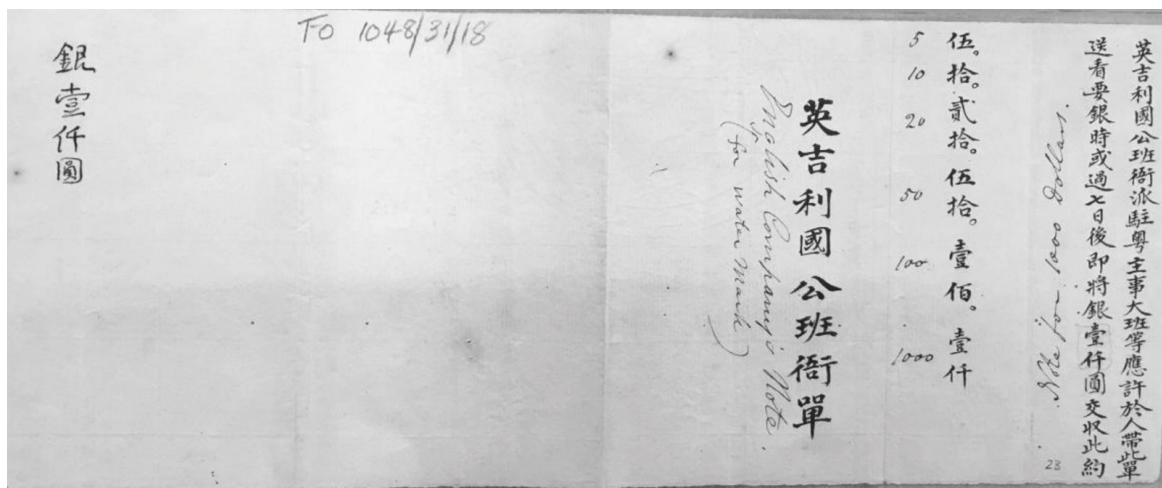 英吉利國公班衙派駐粵主事大班等應許於人帶此單
送看要銀時或過七日後即將銀壹仟圓交収此約
Note for 1000 Dollars.
伍。拾。貳拾。伍拾。壹佰。壹仟
5 10 20 50 100 1000
英吉利國公班衙單
English Company's Note.
(for water mark)
FO 1048/31/18
銀壹仟圓
23